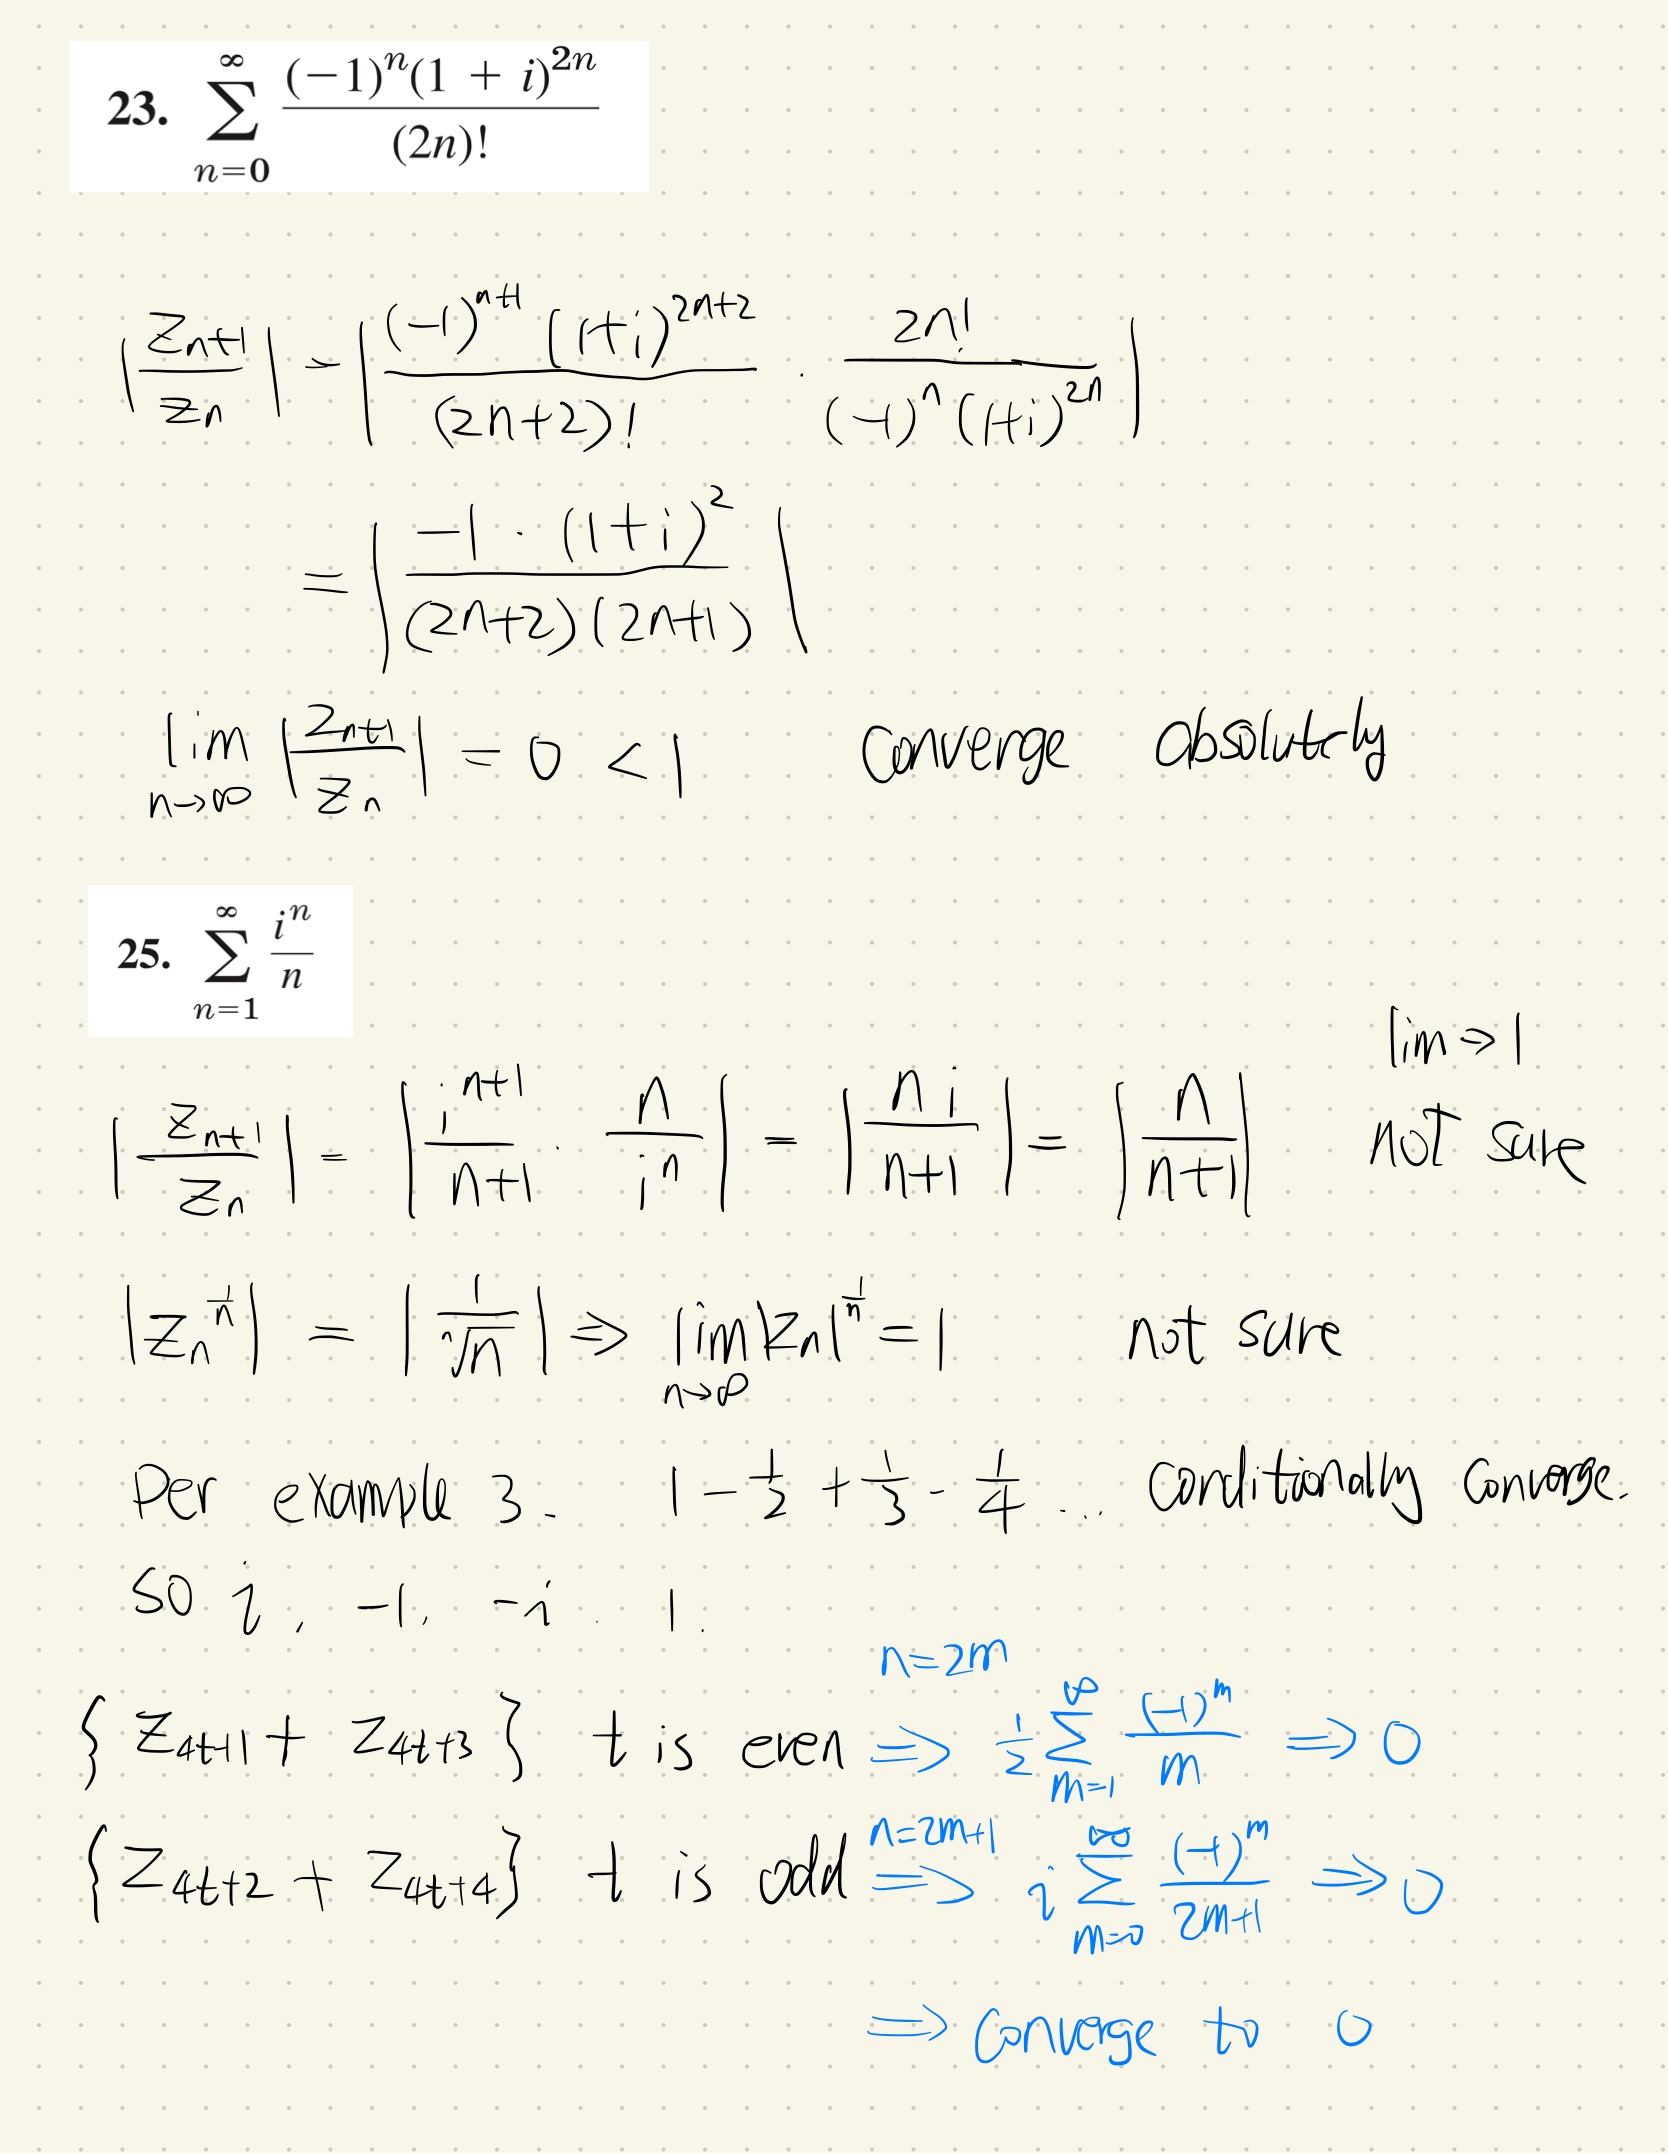 23. \sum_{n=0}^{\infty} \frac{(-1)^n(1+i)^{2n}}{(2n)!}
|\frac{z_{n+1}}{z_n}| = |\frac{(-1)^{n+1}(1+i)^{2n+2}}{(2n+2)!} \cdot \frac{2n!}{(-1)^n(1+i)^{2n}}|
= |\frac{-1 \cdot (1+i)^2}{(2n+2)(2n+1)}|
\lim_{n→∞} |\frac{z_{n+1}}{z_n}| = 0 < 1 converge absolutely
25. \sum_{n=1}^{\infty} \frac{i^n}{n}
lim ⇒ 1
|\frac{z_{n+1}}{z_n}| = |\frac{i^{n+1}}{n+1} \cdot \frac{n}{i^n}| = |\frac{ni}{n+1}| = |\frac{n}{n+1}| not sure
|z_n^{\frac{1}{n}}| = |\frac{1}{\sqrt[n]{n}}| ⇒ \lim_{n→∞} |z_n|^{\frac{1}{n}} = 1 not sure
Per example 3. 1 - \frac{1}{2} + \frac{1}{3} - \frac{1}{4} ... conditionally converge.
so i, -1, -i. 1.
n=2m
{z_{4t+1} + z_{4t+3}} t is even ⇒ \frac{1}{2} \sum_{m=1}^{\infty} \frac{(-1)^m}{m} ⇒ 0
n=2m+1
{z_{4t+2} + z_{4t+4}} t is odd ⇒ i \sum_{m=0}^{\infty} \frac{(-1)^m}{2m+1} ⇒ 0
⇒ converge to 0